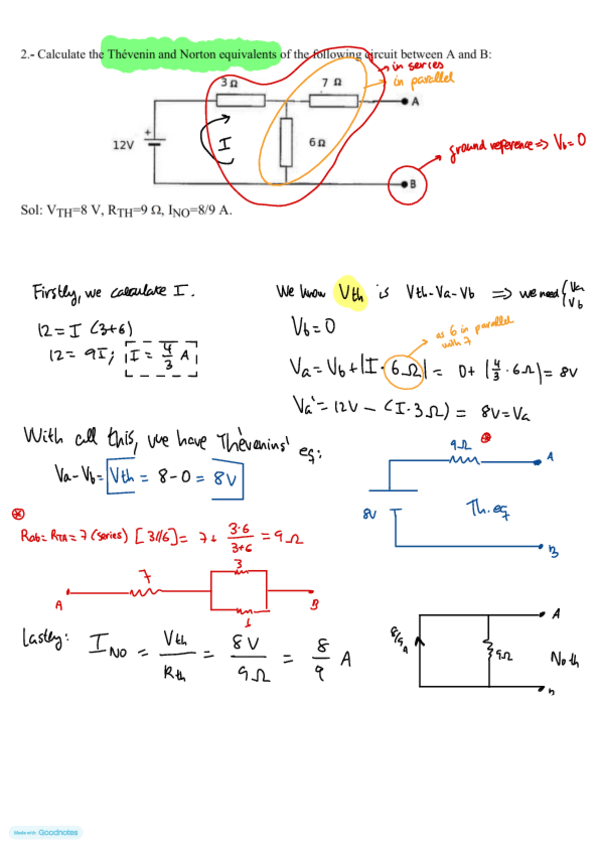 2.- Calculate the Thévenin and Norton equivalents of the following circuit between A and B:
in series
in parallel
3 Ω
7 Ω
A
12V
+
I
6Ω
B
ground reference => Vb=0
Sol: VTH=8 V, RTH=9 Ω, INO=8/9 A.
Firstly, we calculate I.
12 = I (3+6)
12 = 9I; I = 4/3 A
We know Vth is Vth-Va-Vb => we need { Va Vb
Vb = 0
as 6 in parallel with 7
Va = Vb + |I · 6Ω| = 0 + |4/3 · 6Ω| = 8V
Va' = 12V - (I · 3Ω) = 8V = Va
With all this, we have Thévenins' eq:
Va - Vb = Vth = 8 - 0 = 8V
9Ω
A
8V
Th. eq
B
Rab = RTA = 7 (series) [3//6] = 7 + 3·6/3+6 = 9Ω
7
3
A
B
Lastly: INO = Vth/Rth = 8V/9Ω = 8/9 A
8/9 A
9Ω
A
Noth
B
Made with Goodnotes